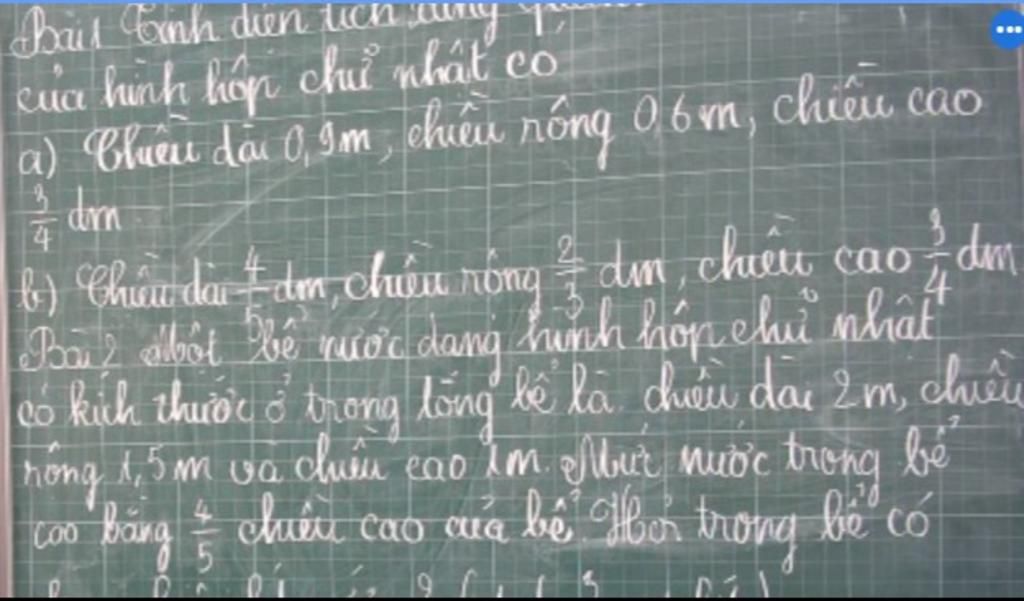 Bài 1 Tính diện tích xung
của hình hộp chữ nhật có
a) Chiều dài 0,9m, chiều rộng 0,6m, chiều cao
3/4 dm
b) Chiều dài 4/5 dm, chiều rộng 2/3 dm, chiều cao 3/4 dm
Bài 2 Một bể nước dạng hình hộp chữ nhật
có kích thước ở trong lòng bể là chiều dài 2m, chiều
rộng 1,5m và chiều cao 1m. Mức nước trong bể
cao bằng 4/5 chiều cao của bể. Hỏi trong bể có